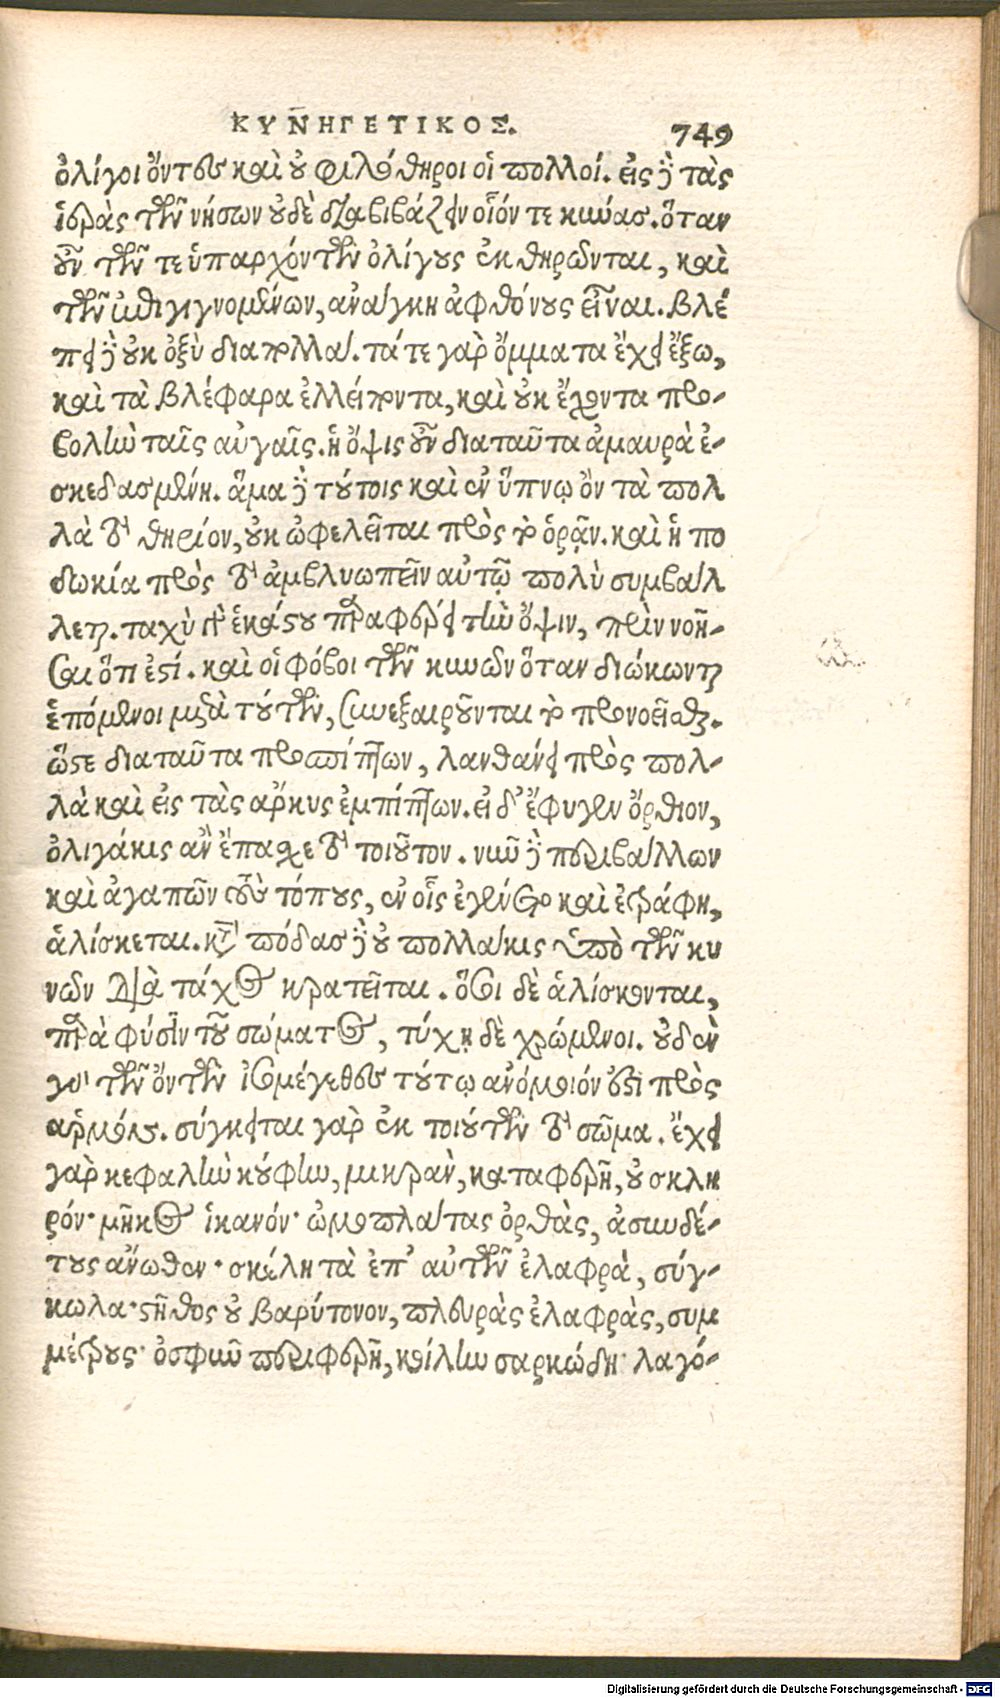 ΚΥΝΗΓΕΤΙΚΟΣ.
749
ὀλίγοι ὄντες καὶ οὐ φιλόθηροι οἱ πολλοί. εἰς δὲ τὰς
ἱερὰς τῶν νήσων οὐδὲ διαβιβάζειν οἷόν τε κύνας. ὅταν
οὖν τῶν τε ὑπαρχόντων ὀλίγους ἐκθηρῶνται, καὶ
τῶν ἐπιγιγνομένων, ἀνάγκη ἀφθόνους εἶναι. βλέ
πει δὲ οὐκ ὀξὺ διὰ πολλά. τά τε γὰρ ὄμματα ἔχει ἔξω,
καὶ τὰ βλέφαρα ἐλλείποντα, καὶ οὐκ ἔχοντα προ-
βολὴν ταῖς αὐγαῖς. ἡ ὄψις οὖν διὰ ταῦτα ἀμαυρὰ ἐ-
σκεδασμένη. ἅμα δὲ τούτοις καὶ ἐν ὕπνῳ ὂν τὰ πολ
λὰ τὸ θηρίον, οὐκ ὠφελεῖται πρὸς τὸ ὁρᾷν. καὶ ἡ πο
δωκία πρὸς τὸ ἀμβλυωπεῖν αὐτῷ πολὺ συμβάλ
λεται. ταχὺ γὰρ ἑκάστου παραφέρει τὴν ὄψιν, πρὶν νοῆ-
σαι ὅτι ἐστί. καὶ οἱ φόβοι τῶν κυνῶν ὅταν διώκωνται
ἑπόμενοι μετὰ τούτων, συνεξαιροῦνται τὸ προνοεῖσθαι.
ὥστε διὰ ταῦτα προσπίπτων, λανθάνει πρὸς πολ-
λὰ καὶ εἰς τὰς ἄρκυς ἐμπίπτων. εἰ δ' ἔφυγεν ὄρθιον,
ὀλιγάκις ἂν ἔπασχε τὸ τοιοῦτον. νῦν δὲ περιβάλλων
καὶ ἀγαπῶν τοὺς τόπους, ἐν οἷς ἐγένετο καὶ ἐτράφη,
ἁλίσκεται. κατὰ πόδας δὲ οὐ πολλάκις ὑπὸ τῶν κυ
νῶν διὰ τάχος κρατεῖται. ὅσοι δὲ ἁλίσκονται,
παρὰ φύσιν τοῦ σώματος, τύχῃ δὲ χρώμενοι. οὐδὲν
γὰρ τῶν ὄντων ἰσομέγεθες τούτῳ ἀνόμοιόν ἐστι πρὸς
ἁρμόν. σύγκειται γὰρ ἐκ τοιούτων τὸ σῶμα. ἔχει
γὰρ κεφαλὴν κούφην, μικρὰν, καταφερῆ, οὐ σκλη
ρόν· μῆκος ἱκανόν· ὠμοπλάτας ὀρθὰς, ἀσυνδέ-
τους ἄνωθεν· σκέλη τὰ ἐπ' αὐτῶν ἐλαφρὰ, σύγ-
κωλα· στῆθος οὐ βαρύτονον, πλευρὰς ἐλαφρὰς, συμ
μέτρους· ὀσφῦν περιφερῆ, κοίλην σαρκώδη· λαγό-
Digitalisierung gefördert durch die Deutsche Forschungsgemeinschaft - DFG